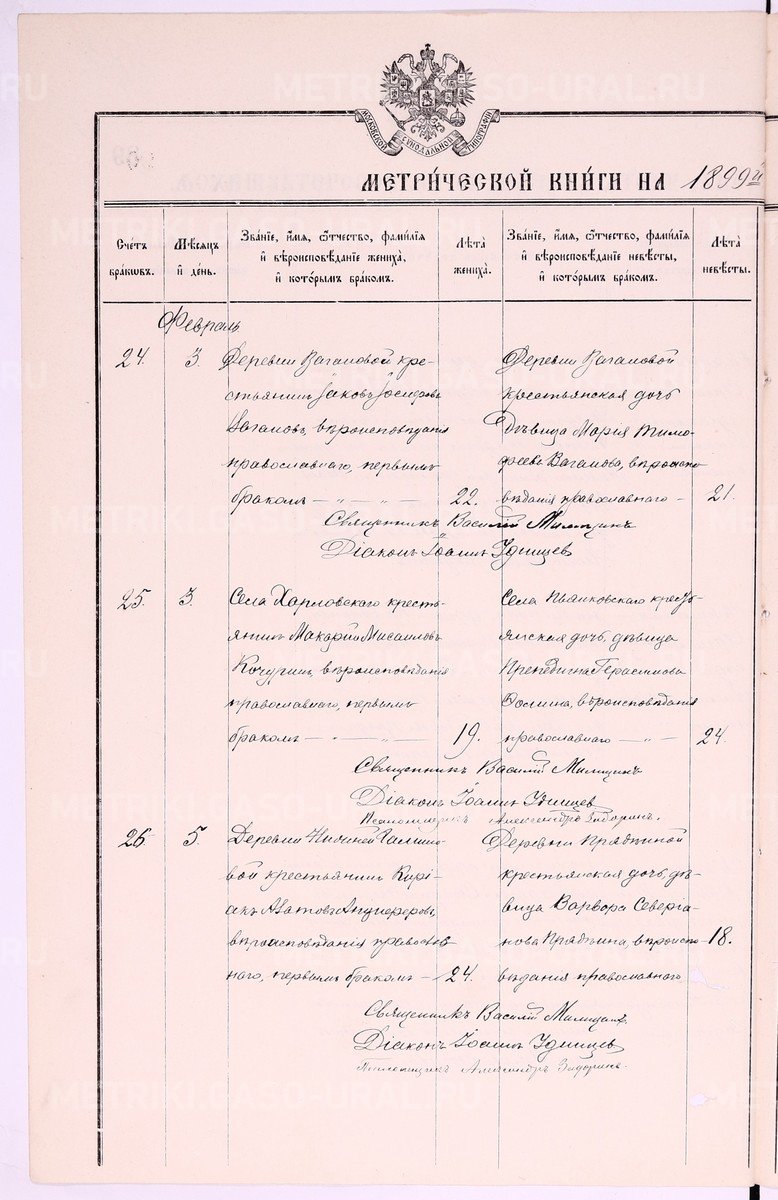 METRIKI.GASO-URAL.RU
МОСКОВСКОЙ СѴНОДАЛЬНОЙ ТИПОГРАФІИ
МЕТРИ́ЧЕСКОЙ КНИ́ГИ НА 1899й
Сче́тъ бра́кѡвъ.
Мѣ́сяцъ и҆ де́нь.
Зва́нїе, и҆́мя, ѻ҆́тчество, фами́лїя и҆ вѣроисповѣ́данїе жениха̀, и҆ кото́рымъ бра́комъ.
Лѣ́та жениха̀.
Зва́нїе, и҆́мя, ѻ҆́тчество, фами́лїя и҆ вѣроисповѣ́данїе невѣ́сты, и҆ кото́рымъ бра́комъ.
Лѣ́та невѣ́сты.
Февраль
24. 3. Деревни Вагановой кре-
стьянинъ Іаковъ Іосифовъ
Вагановъ, вѣроисповѣданія
православнаго, первымъ
бракомъ — 22.
Деревни Вагановой
крестьянская дочь
дѣвица Марія Тимо-
феева Ваганова, вѣроиспо-
вѣданія православнаго — 21.
Священникъ Василій Милицынъ
Діаконъ Іоаннъ Удинцев
25. 3. Села Харловскаго кресть-
янинъ Макарій
Кочуринъ, вѣроисповѣданія
православнаго, первымъ
бракомъ — 19.
Села кресть-
янская дочь, дѣвица
Герасимова
вѣроисповѣданія
православнаго — 24.
Священникъ Василій Милицынъ
Діаконъ Іоаннъ Удинцев
Псаломщикъ Александръ
26. 5. Деревни
вой крестьянинъ Кирі-
акъ
вѣроисповѣданія православ-
наго, первымъ бракомъ — 24.
Деревни Прядеиной
крестьянская дочь, дѣ-
вица Варвара Северіа-
нова Прядеина, вѣроиспо- 18.
вѣданія православнаго
Священникъ Василій Милицынъ
Діаконъ Іоаннъ Удинцев
Псаломщикъ Александръ